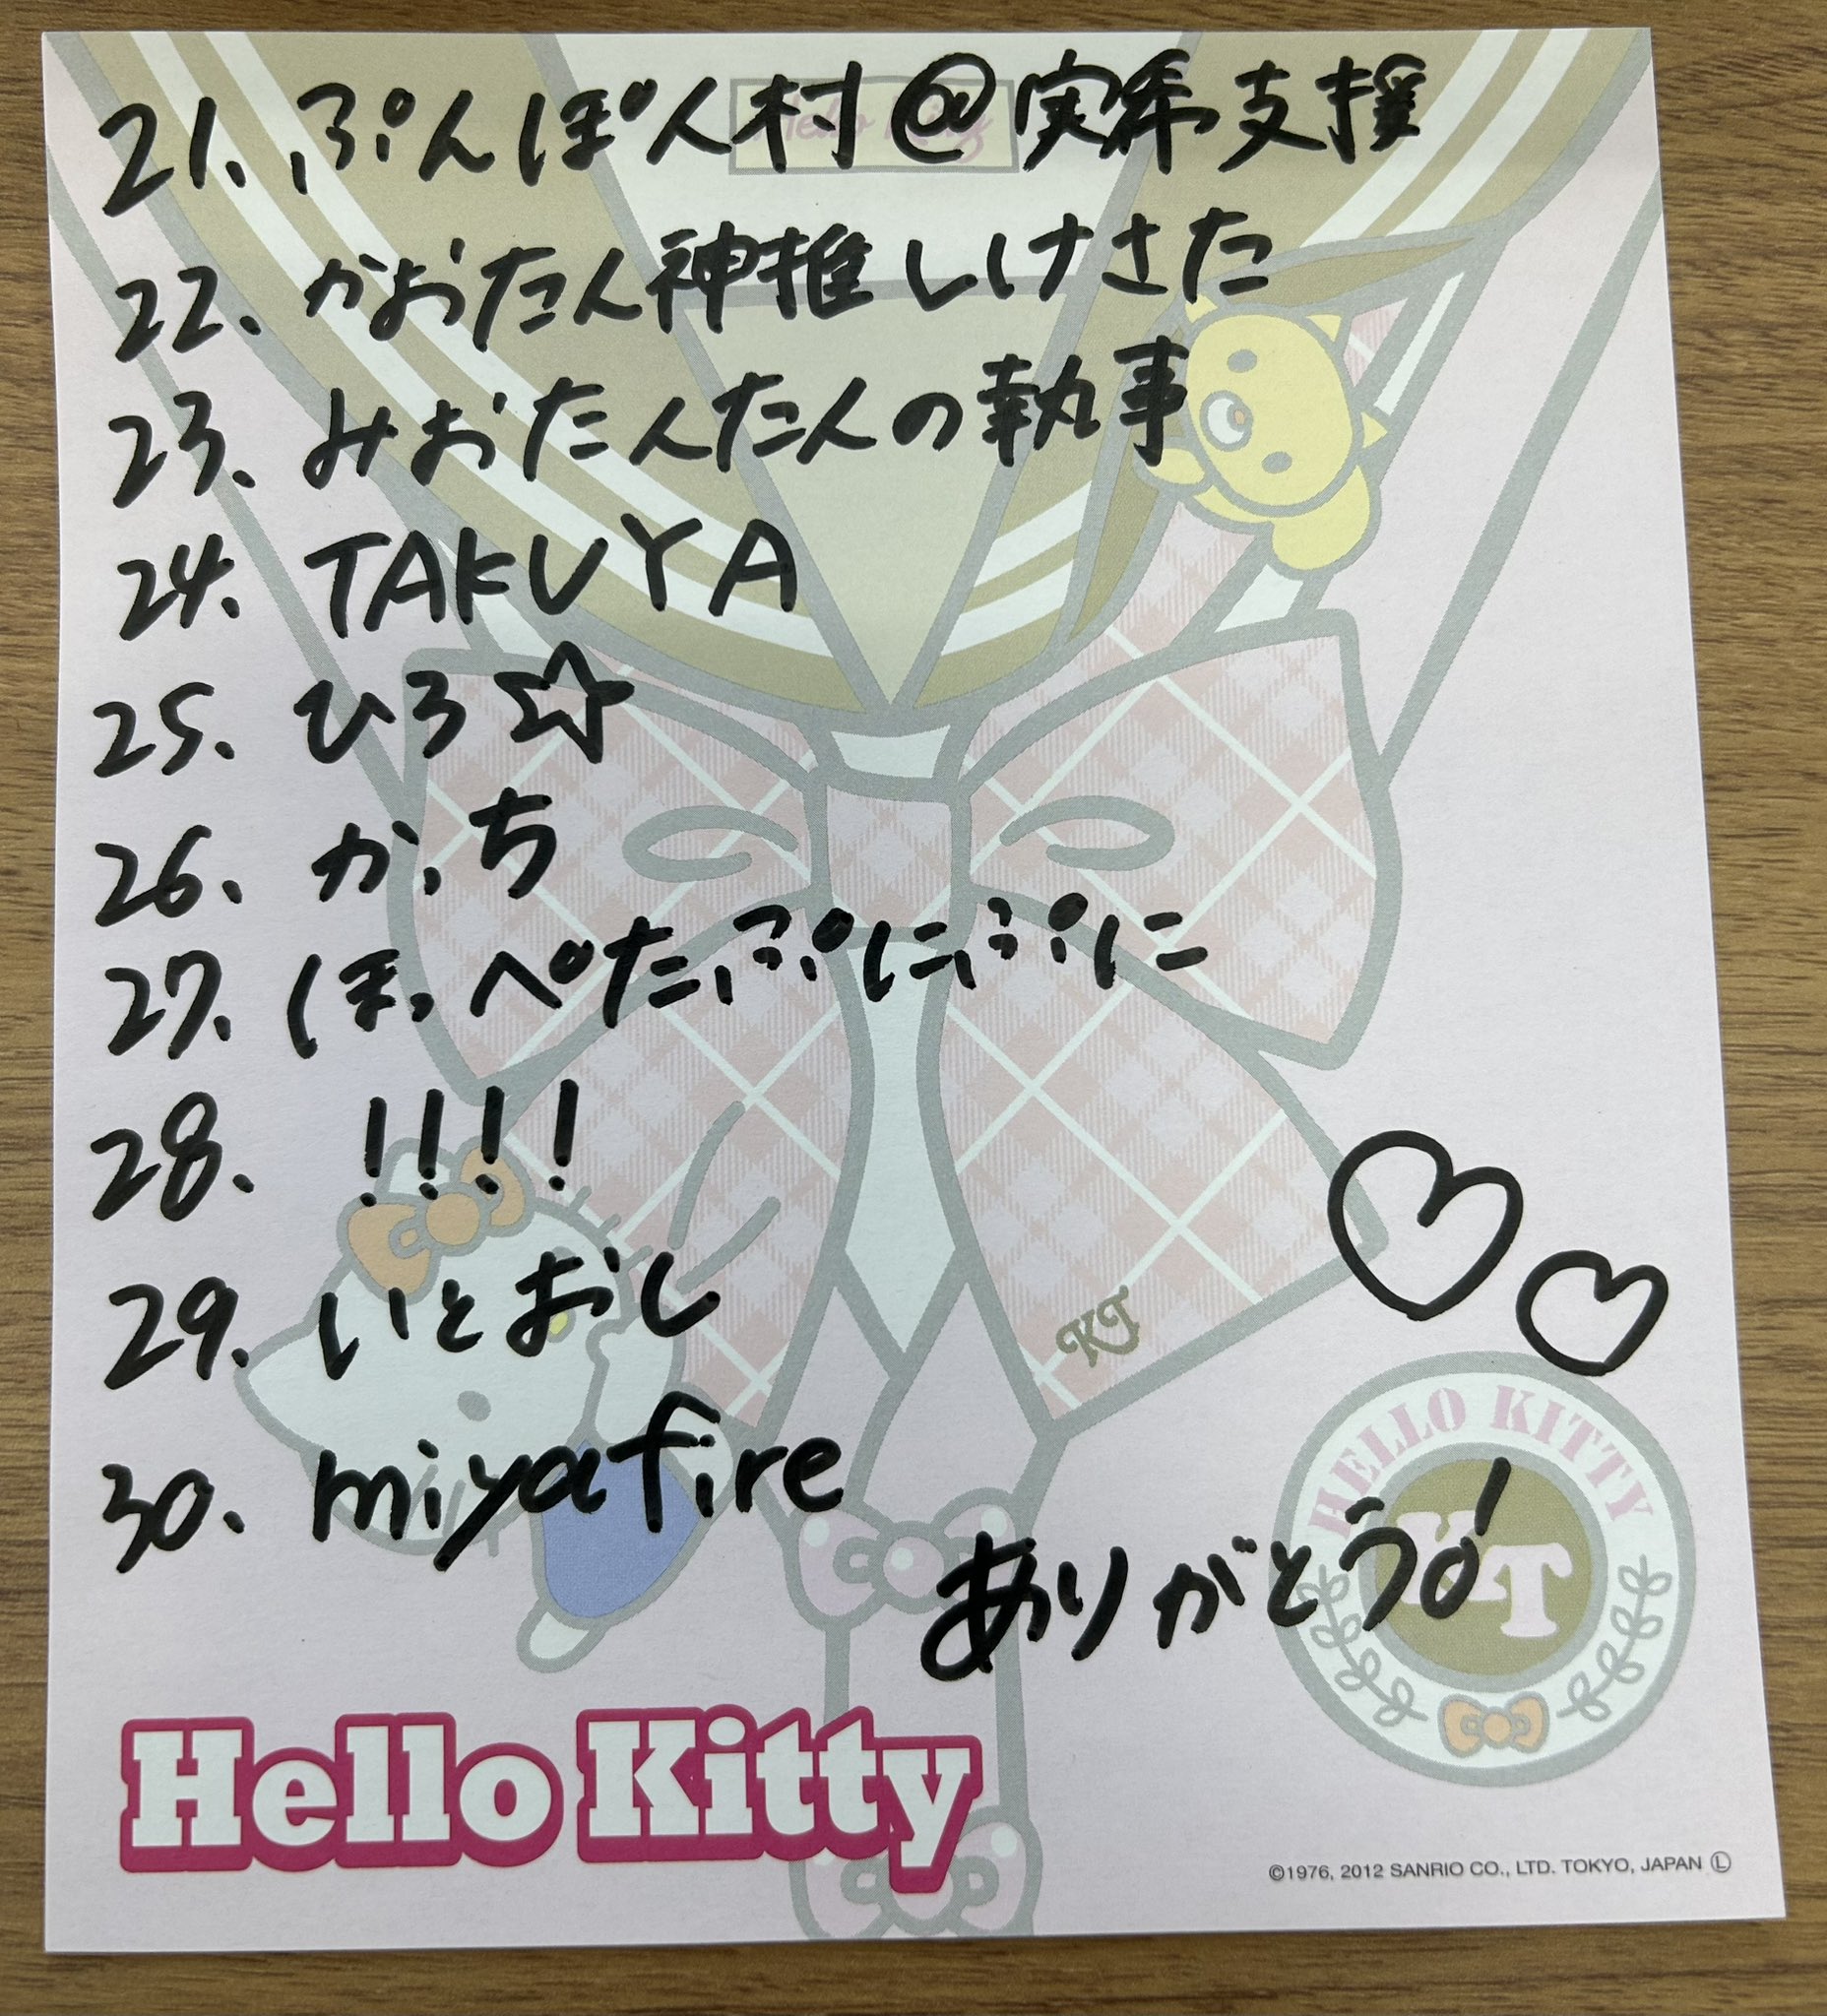 21. ぷんぽん村@実希支援
22. かおたん神推しけさた
23. みおたんたんの執事
24. TAKUYA
25. ひろ☆
26. かっち
27. ほっぺたぷにぷに
28. !!!!
29. いとおし
30. miyafire
ありがとう!
KT
HELLO KITTY
KT
Hello Kitty
©1976, 2012 SANRIO CO., LTD. TOKYO, JAPAN Ⓛ